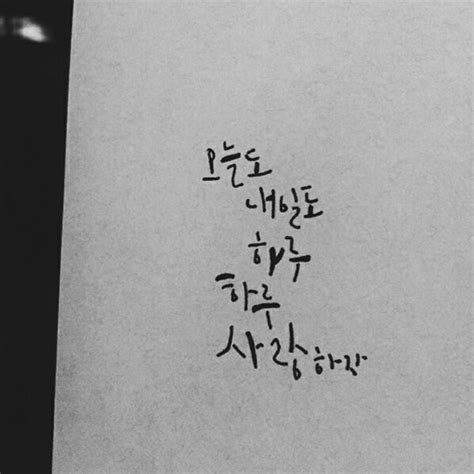 오늘도
내일도
하루
하루
사랑하자